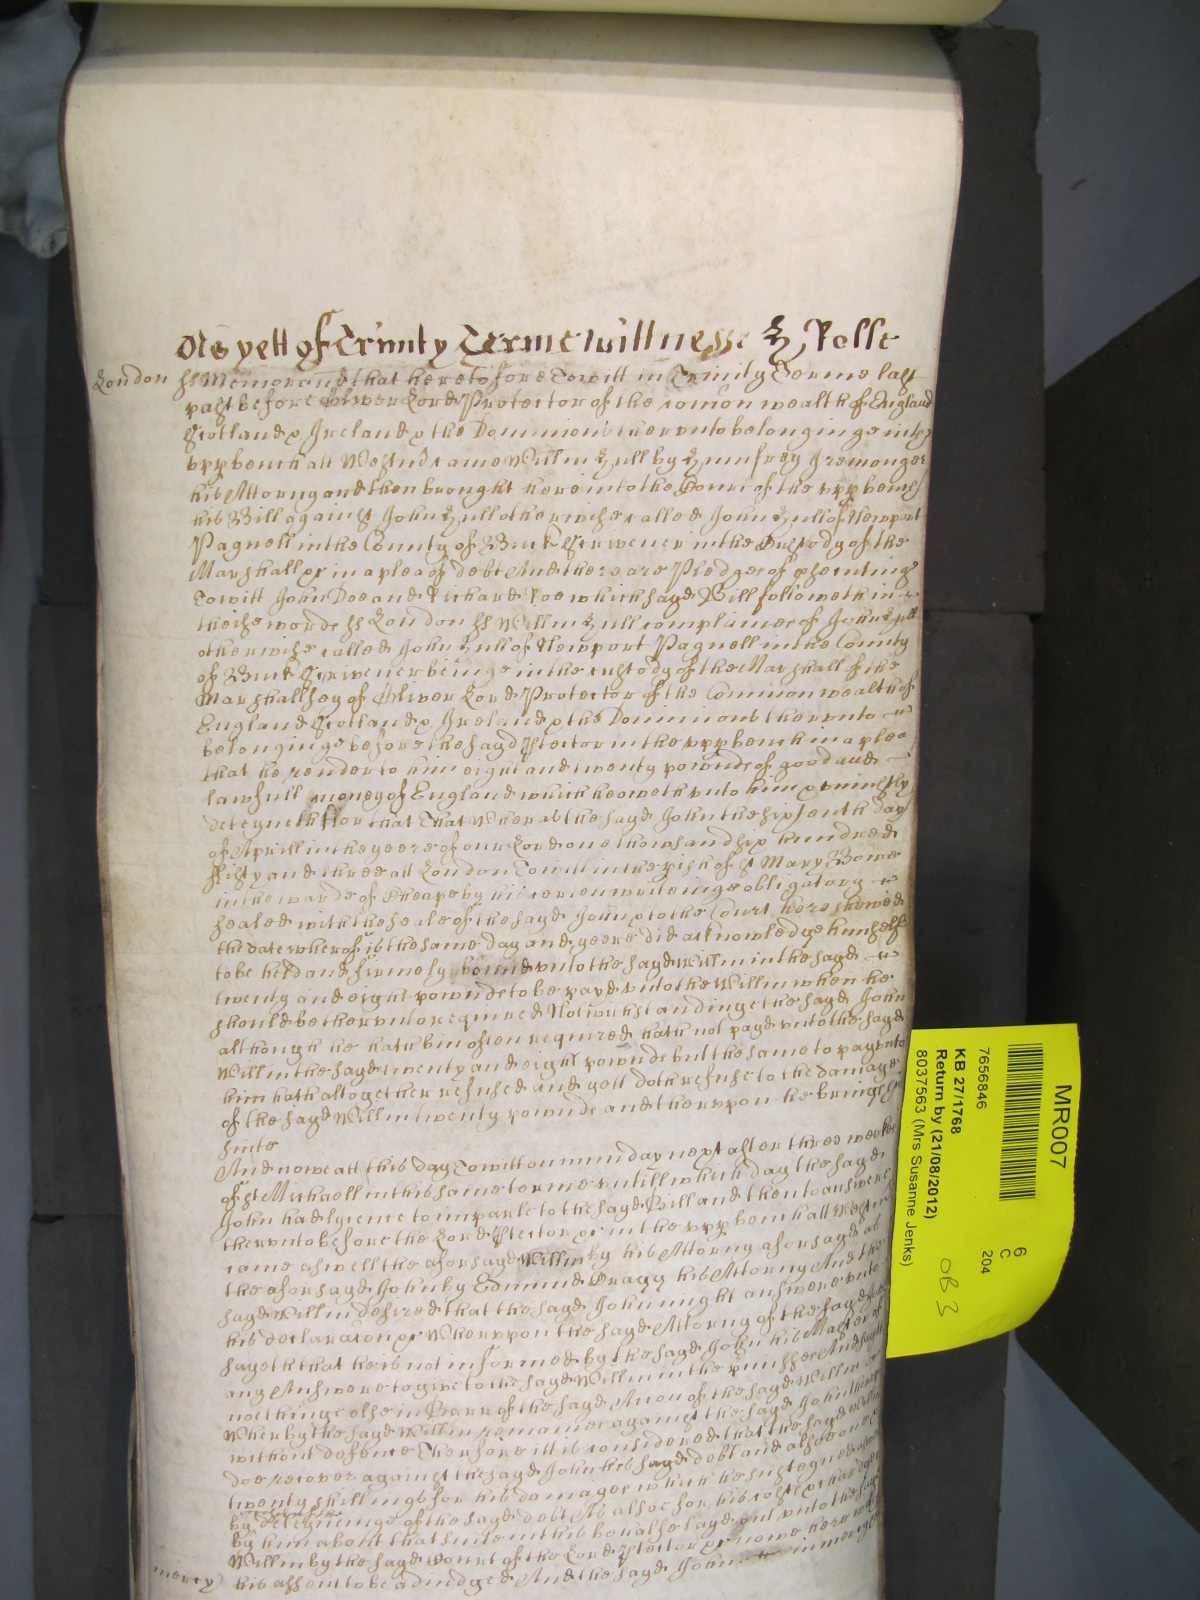 As yett of Trinity Terme wittnesse H Rolle
London ss Memorand that heretofore Towitt in Trinity Terme last
past before Oliver Lord Protector of the comon wealth of England
Scotland & Ireland & the Dominions therunto belonginge in the
upp bench att Westm came Willm Hull by Humfrey Iremonger
his Attorny and then brought here into the Court of the upp bench
his Bill against John Hull otherwise called John Hull of Newport
Pagnell in the County of Buck Scrivener in the Custody of the
Marshall &c in a plea of debt And there are Pledges of psecutinge
Towitt John Doe and Richard Roe which sayd Bill followeth in
theise words ss London ss Willm Hull complaines of John Hull
otherwise called John Hull of Newport Pagnell in the County
of Buck Scrivener beinge in the custody of the Marshall of the
Marshallsey of Oliver Lord Protector of the Common wealth of
England Scotland & Ireland & the Dominions therunto
belonginge before the sayd Ptector in the upp bench in a plea
that he render to him eight and twenty pownds of good and
lawfull money of England which he oweth unto him & uniustly
deteyneth For that That Wheras the sayd John the sixtenth day
of Aprill in the yeere of our Lord one thowsand six hundred
fifty and three att London Towitt in the pish of St Mary Bowe
in the warde of Cheape by his certen writeinge obligatory
sealed with the seale of the sayd John & to the Court here shewed
the date wherof is the same day and yeere did acknowledge himselfe
to be held and firmely bound unto the sayd Willm in the sayd
twenty and eight pownds to be payd unto the Willm when he
should be therunto required Notwithstandinge the sayd John
although he hath bin often required hath not payd unto the sayd
Willm the sayd twenty and eight pownds but the same to pay unto
him hath altogether refused and yett doth refuse to the damage
of the sayd Willm twenty pownds and therupon he brings
suite
And nowe att this day Towitt on munday next after three weekes
of St Michaell in this same terme untill which day the sayd
John had lycence to imparle to the sayd Bill and then to answere
therunto before the Lord Ptector &c in the upp bench att Westm
came aswell the aforsayd Willm by his Attorny aforsayd as
the aforsayd John by Edmund Bragg his Attorny And the
sayd Willm desired that the sayd John might answere unto
his declaracon &c Wherupon the sayd Attorny of the sayd John
sayeth that he is not informed by the sayd John his Master of
any Answere to give to the sayd Willm in the pmisses And sayth
nothinge else in Barr of the sayd Accon of the sayd Willm
Wherby the sayd Willm remaines against the sayd John therin
without defence Therfore itt is considered that the sayd Willm
doe recover against the sayd John his sayd debt and alsoe
twenty shillings for his damages which he susteyned
by deteyninge of the sayd debt As alsoe for his costs & charges
by him about that suite in this behalfe layd out unto the sayd
Willm by the sayd Court of the Lord Ptector &c nowe here with
his assent to be adiudged And the sayd John in mercy
mercy
MR007
6
C
204
7656846
KB 27/1768
Return by (21/08/2012)
8037563 (Mrs Susanne Jenks)
OB 3